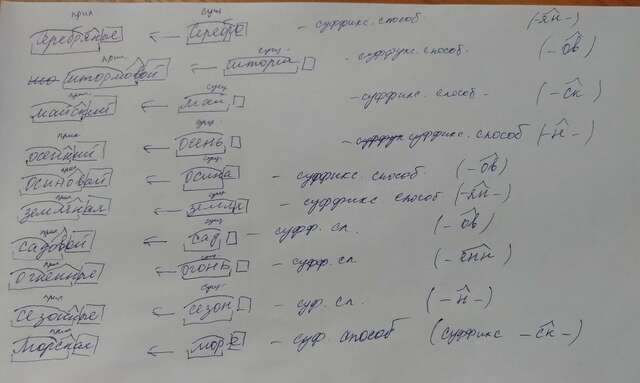 прил сущ
серебряные ← серебро – суффикс. способ (-ян-)
прил. сущ.
штормовой ← шторм – суффикс. способ. (-ов)
прил. сущ
майский ← май – суффикс. способ – (-ск)
прил. сущ.
осенний ← осень – суффикс. способ (-н-)
прил сущ.
осиновой ← осина – суффикс. способ. (-ов)
прил сущ
земляная ← земля – суффикс способ (-ян-)
прил сущ.
садовой ← сад – суфф. сп. (-ов)
прил сущ
огненные ← огонь – суфф. сп (-енн)
прил сущ.
сезонные ← сезон – суф. сп. (-н-)
прил сущ
Морская ← море – суф. способ (суффикс -ск-)